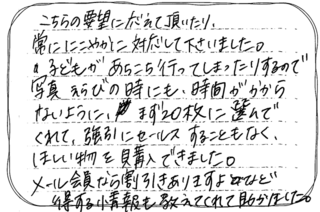 こちらの要望にこたえて頂いたり、
常ににこやかに対応して下さいました。
子どもがあちこち行ってしまったりするので
写真えらびの時にも、時間がかから
ないように、まず20枚に選んで
くれて、強引にセールスすることもなく、
ほしい物を購入できました。
メール会員なら割引きありますよなど
得する情報も教えてくれて助かりました。